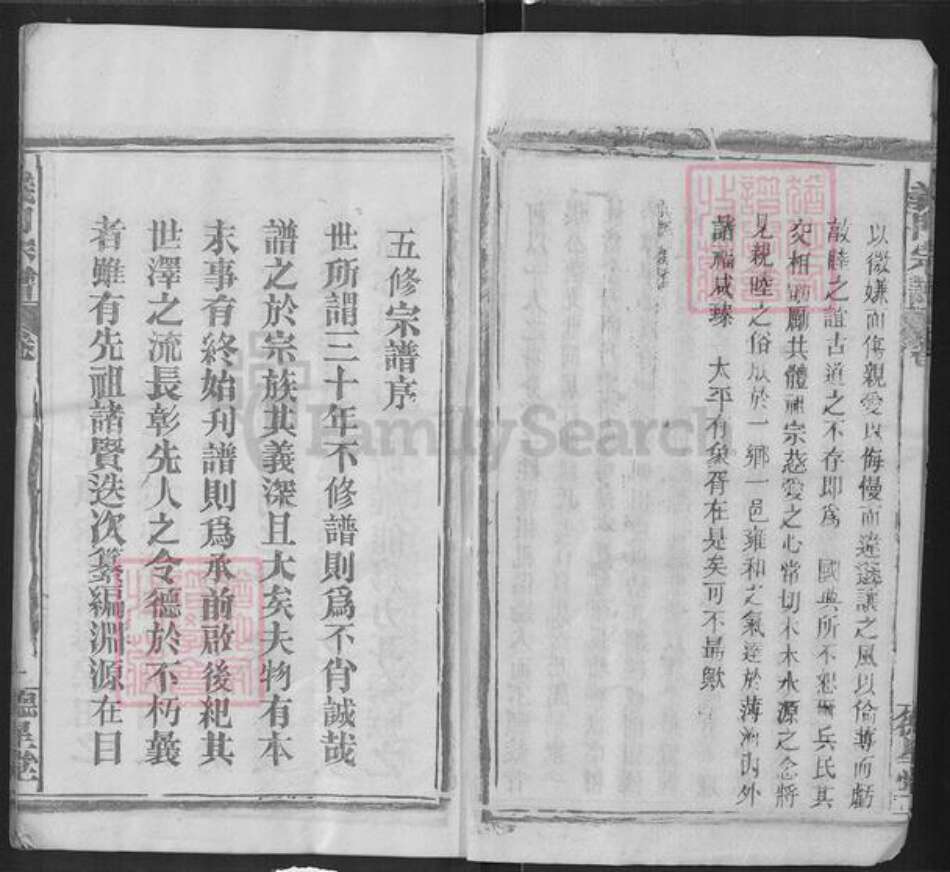 以微嫌而傷親愛以侮慢而違遜讓之風以偷薄而虧
敦睦之誼古道之不存即為 國典所不恕爾兵民其
交相勸勵共體祖宗慈愛之心常切木本水源之念將
見親睦之俗成於一鄉一邑雍和之氣達於薄海內外
諸福咸臻 太平有象胥在是矣可不勗歟
五修宗譜序
世所謂三十年不修譜則爲不肖誠哉
譜之於宗族其義深且大矣夫物有本
末事有終始刋譜則爲承前啟後紀其
世澤之流長彰先人之令德於不朽義
者雖有先祖諸賢迭次纂編淵源在目
FamilySearch